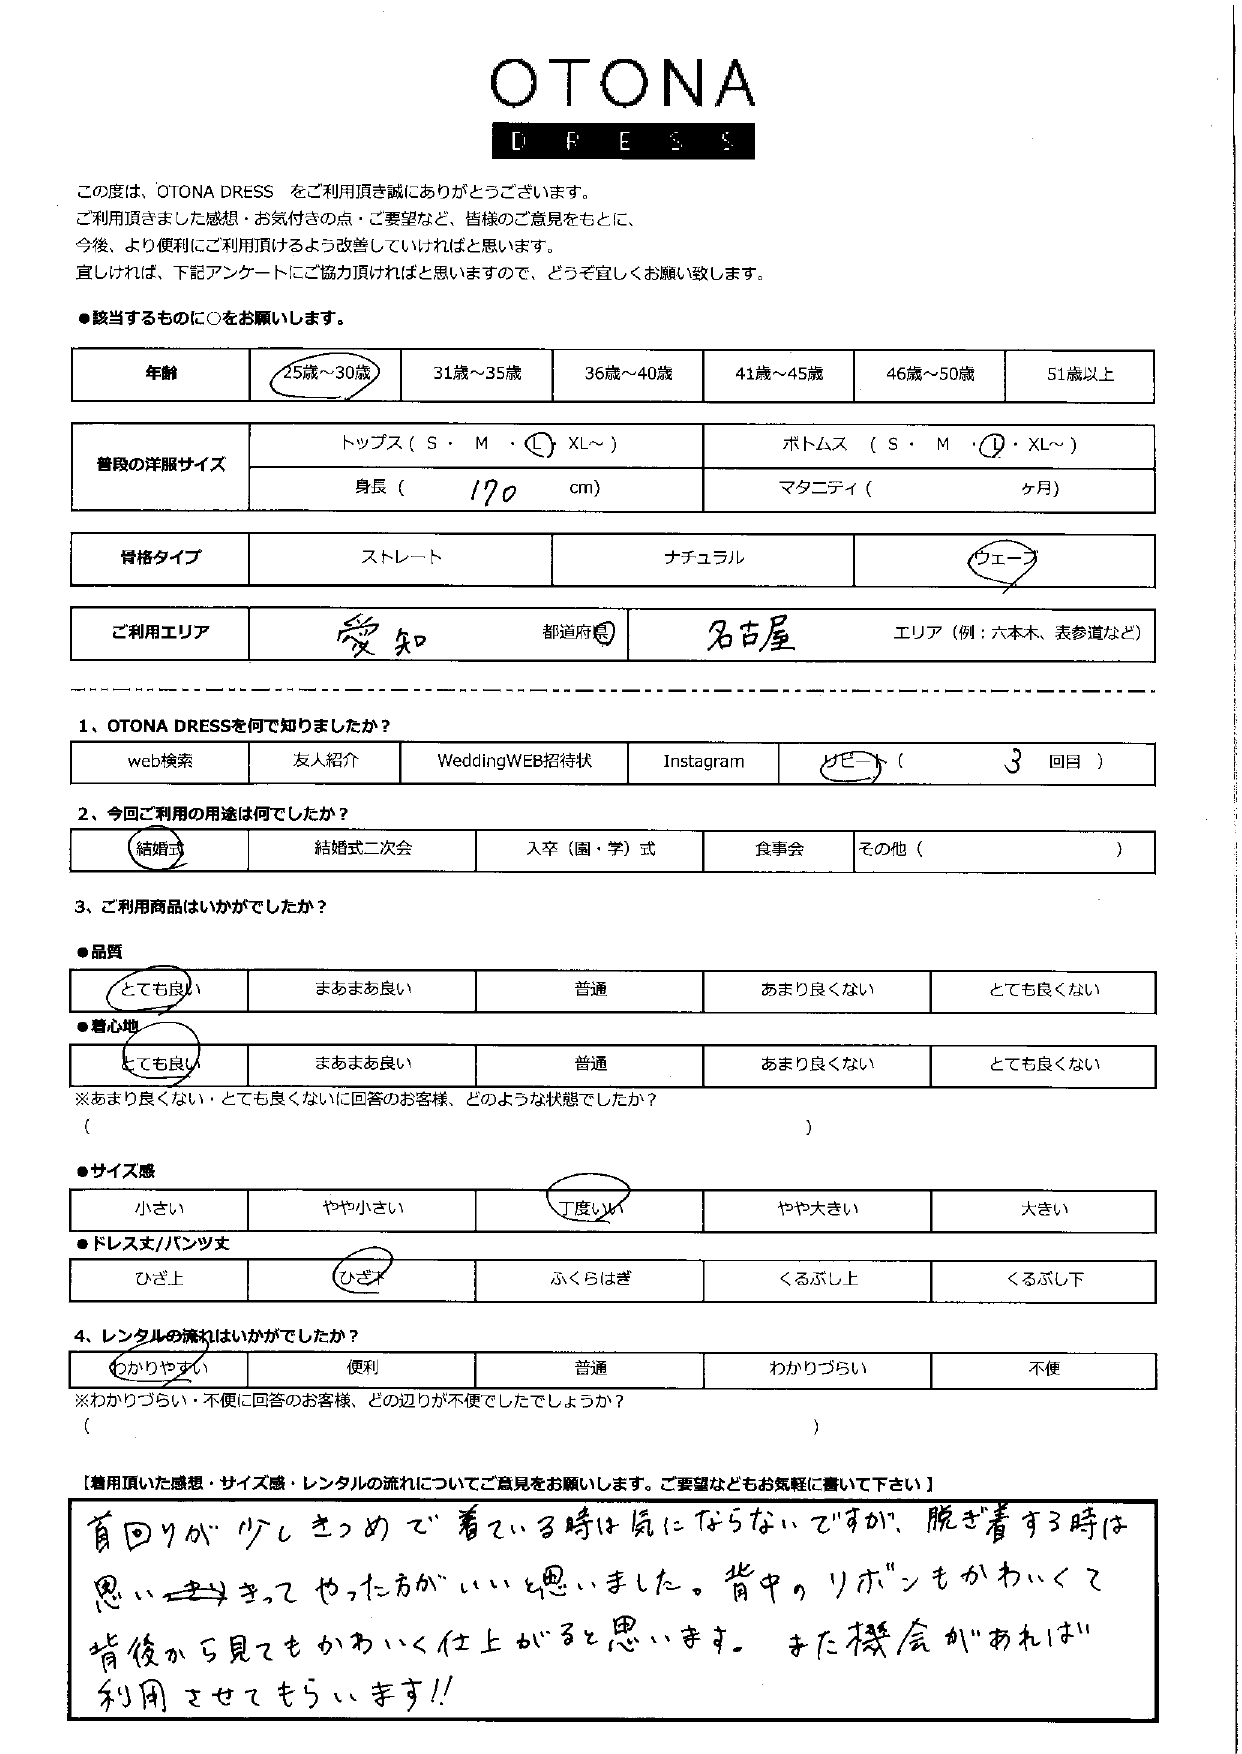 OTONA
DRESS
この度は、OTONA DRESS をご利用頂き誠にありがとうございます。
ご利用頂きました感想・お気付きの点・ご要望など、皆様のご意見をもとに、
今後、より便利にご利用頂けるよう改善していければと思います。
宜しければ、下記アンケートにご協力頂ければと思いますので、どうぞ宜しくお願い致します。
●該当するものに○をお願いします。
年齢 25歳～30歳 31歳～35歳 36歳～40歳 41歳～45歳 46歳～50歳 51歳以上
普段の洋服サイズ トップス ( S ・ M ・ L ・ XL～ ) ボトムス ( S ・ M ・ L ・ XL～ )
身長 ( 170 cm) マタニティ ( ヶ月)
骨格タイプ ストレート ナチュラル ウェーブ
ご利用エリア 愛知 都道府県 名古屋 エリア（例：六本木、表参道など）
1、OTONA DRESSを何で知りましたか？
web検索 友人紹介 WeddingWEB招待状 Instagram リピート ( 3 回目 )
2、今回ご利用の用途は何でしたか？
結婚式 結婚式二次会 入卒（園・学）式 食事会 その他 ( )
3、ご利用商品はいかがでしたか？
●品質
とても良い まあまあ良い 普通 あまり良くない とても良くない
●着心地
とても良い まあまあ良い 普通 あまり良くない とても良くない
※あまり良くない・とても良くないに回答のお客様、どのような状態でしたか？
( )
●サイズ感
小さい やや小さい 丁度いい やや大きい 大きい
●ドレス丈/パンツ丈
ひざ上 ひざ下 ふくらはぎ くるぶし上 くるぶし下
4、レンタルの流れはいかがでしたか？
わかりやすい 便利 普通 わかりづらい 不便
※わかりづらい・不便に回答のお客様、どの辺りが不便でしたでしょうか？
( )
【着用頂いた感想・サイズ感・レンタルの流れについてご意見をお願いします。ご要望などもお気軽に書いて下さい】
首回りが少しきつめで着ている時は気にならないですが、脱ぎ着する時は
思いきってやった方がいいと思いました。背中のリボンもかわいくて
背後から見てもかわいく仕上がると思います。また機会があれば
利用させてもらいます!!